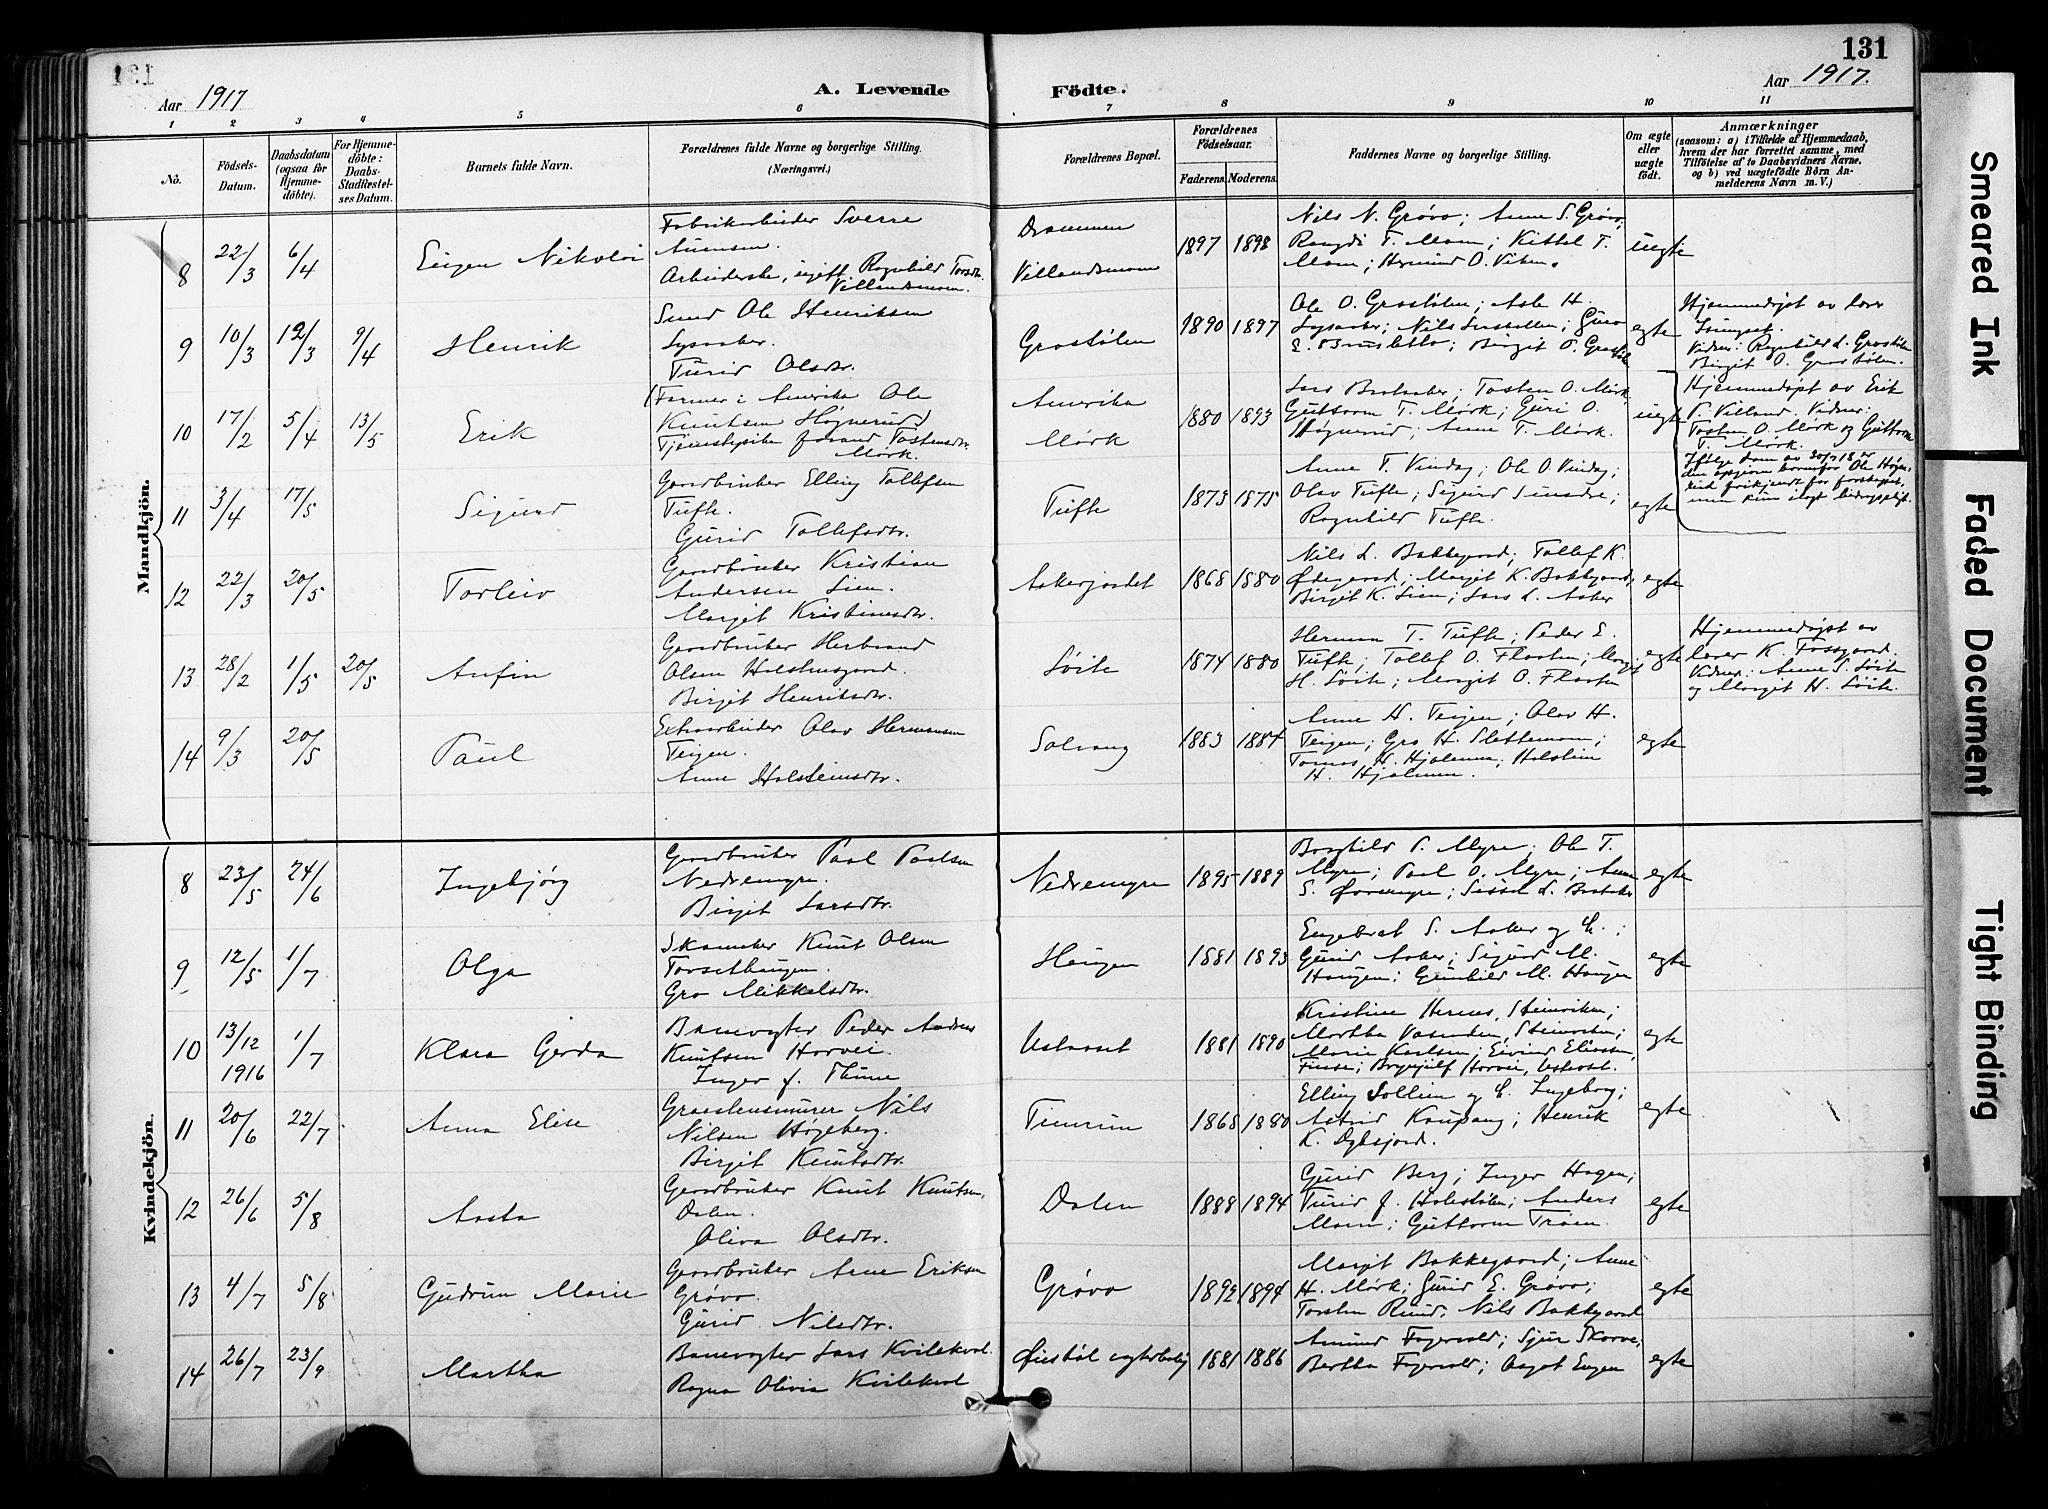 131
Aar 1917
A. Levende Fødte.
Aar 1917.
1 2 3 4 5 6 7 8 9 10 11
No.
Fødsels-Datum.
Daabsdatum (ogsaa for Hjemmedöbte).
For Hjemmedöbte: Daabs-Stadfæstelses Datum.
Barnets fulde Navn.
Forældrenes fulde Navne og borgerlige Stilling.
(Næringsvei.)
Forældrenes Bopæl.
Forældrenes Fødselsaar.
Faderens. Moderens.
Faddernes Navne og borgerlige Stilling.
Om ægte eller uægte født.
Anmærkninger
(saasom: a) i Tilfælde af Hjemmedaab, hvem der har forrettet samme, med Tilföielse af to Daabsvidners Navne, og b) ved uægtefödte Börn Anmelderens Navn m. V.)
Mandkjön.
8 22/3 6/4 Eugen Nikolai
Fabrikarbeider Sverre
Arbeiderske, ugift Ragnhild Torsdtr.
Villandsmoen.
Drammen
Villandsmoen
1897 1898
Nils N. Grøvo; Anne S. Grøvo;
Rangdi T. Moen; Kittel T.
Moen; Hermund O. Viken.
uegte
9 10/3 12/3 9/4 Henrik
Smed Ole Henriksen
Lysaaker.
Turid Olsdtr.
Grostølen
1890 1897
Ole O. Grostølen; Asle H.
Lysaaker; Nils; Guro
E. Brusletto; Birgit O. Grostøl
egte
Hjemmedøpt av lærer
Vidner: Ragnhild L. Grostølen
Birgit O. Grostølen.
10 17/2 5/4 13/5 Erik
(Farmer i Amerika Ole
Knutsen Høgnerud)
Tjenestepike Torstensdtr.
Mørk.
Amerika
Mørk
1880 1893
Lars Brataaker; Torsten O. Mørk
Guttorm T. Mørk; Guri O.
Høgnerud; Anne T. Mørk.
uegte
Hjemmedøpt av Erik
P. Villand. Vidner:
Torsten O. Mørk og Guttorm
T. Mørk.
Ifølge dom av 30/7 18 er
den opgivne barnefar Ole Høgnerud frikjendt for farskapet,
men kun ilagt bidragsplikt.
11 3/4 17/5 Sigurd
Gaardbruker Elling Tollefsen
Tufte.
Gurid Tollefsdtr.
Tufte
1873 1875
Anne T. Vindeg; Ole O. Vindeg;
Olav Tufte; Sigurd Sundre;
Ragnhild Tufte.
egte
12 22/3 20/5 Torleiv
Gaardbruker Kristian
Andersen Lien.
Margit Kristiansdtr.
Aakerjordet
1868 1880
Nils L. Bakkegaard; Tollef K.
Ødegaard; Margit K. Bakkegaard;
Birgit K. Lien; Lars L. Aaker
egte
13 28/2 1/5 20/5 Anfin
Gaardbruker Herbrand
Olsen
Birgit Henriksdtr.
Løite
1874 1880
Herman T. Tufte; Peder E.
Tufte; Tollef O. Flaaten; Margit
H. Løite; Margit O. Flaaten
egte
Hjemmedøpt av
lærer K. Fossgaard.
Vidner: Anne S. Løite
og Margit H. Løite.
14 9/3 20/5 Paul
Extraarbeider Olav Hermansen
Teigen.
Anne Holsteinsdtr.
Solvang
1883 1884
Anne H. Teigen; Olav H.
Teigen; Gro H. Slettemoen;
Tomas H. Hjalmen; Holstein
H. Hjalmen.
egte
Kvindekjön.
8 23/5 24/6 Ingebjørg
Gaardbruker Paal Paalsen
Nedremyre.
Birgit Larsdtr.
Nedremyre
1895 1889
Borghild P. Myre; Ole T.
Myre; Paal O. Myre; Anne
S. Øvremyre; Sissel L. Brataaker
egte
9 12/5 1/7 Olga
Skomaker Knut Olsen
Torsethaugen.
Gro Mikkelsdtr.
Haugen
1881 1893
Engebret S. Aaker og h.;
Gurid Aaker; Sigurd M.
Haugen; Gunhild M. Haugen
egte
10 13/12 1916 1/7 Klara Gerda
Banevogter Peder Andreas
Knutsen Horvei.
Inger f. Thune
Ustaoset
1881 1890
Kristine Hernes, Steinviken;
Martha Vasenden, Steinviken;
Marie Karlsen; Eivind Eliassen,
Finse; Brynjulf Horvei, Ustaoset.
egte
11 20/6 22/7 Anna Elise
Graastensmurer Nils
Nilsen Høgeberg.
Birgit Knutsdtr.
Timrun
1868 1880
Elling Sollien og h. Ingeborg;
Astrid Kaupang; Henrik
K. Dybsjord.
egte
12 26/6 5/8 Aasta
Gaardbruker Knut Knutsen
Dalen.
Oliva Olsdtr.
Dalen
1888 1894
Gurid Berg; Inger Hagen;
Turid J. Holestølen; Anders
Moen; Guttorm Trøen.
egte
13 4/7 5/8 Gudrun Marie
Gaardbruker Arne Eriksen
Grøvo.
Gurid Nilsdtr.
Grøvo
1892 1894
Margit Bakkegaard; Anne
H. Mørk; Gurid E. Grøvo;
Torsten Ruud; Nils Bakkegaard
egte
14 26/7 23/9 Martha
Banevogter Lars Kvilekval.
Ragna Olivia Kvilekval
Øiestøl vogterbolig
1881 1886
Amund Fagervold; Sjur Skorve;
Bertha Fagervold; Aagot Engen
egte
Smeared Ink
Faded Document
Tight Binding